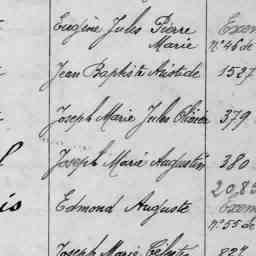 Eugène Jules Pierre Exem
Marie n°46 de
Jean Baptiste Aristide 1527
Joseph Marie Jules Olivier 379
Joseph Marie Augustin 380
2085
is Edmond Auguste Exem
n°55 de
Joseph Marie Célestin 827